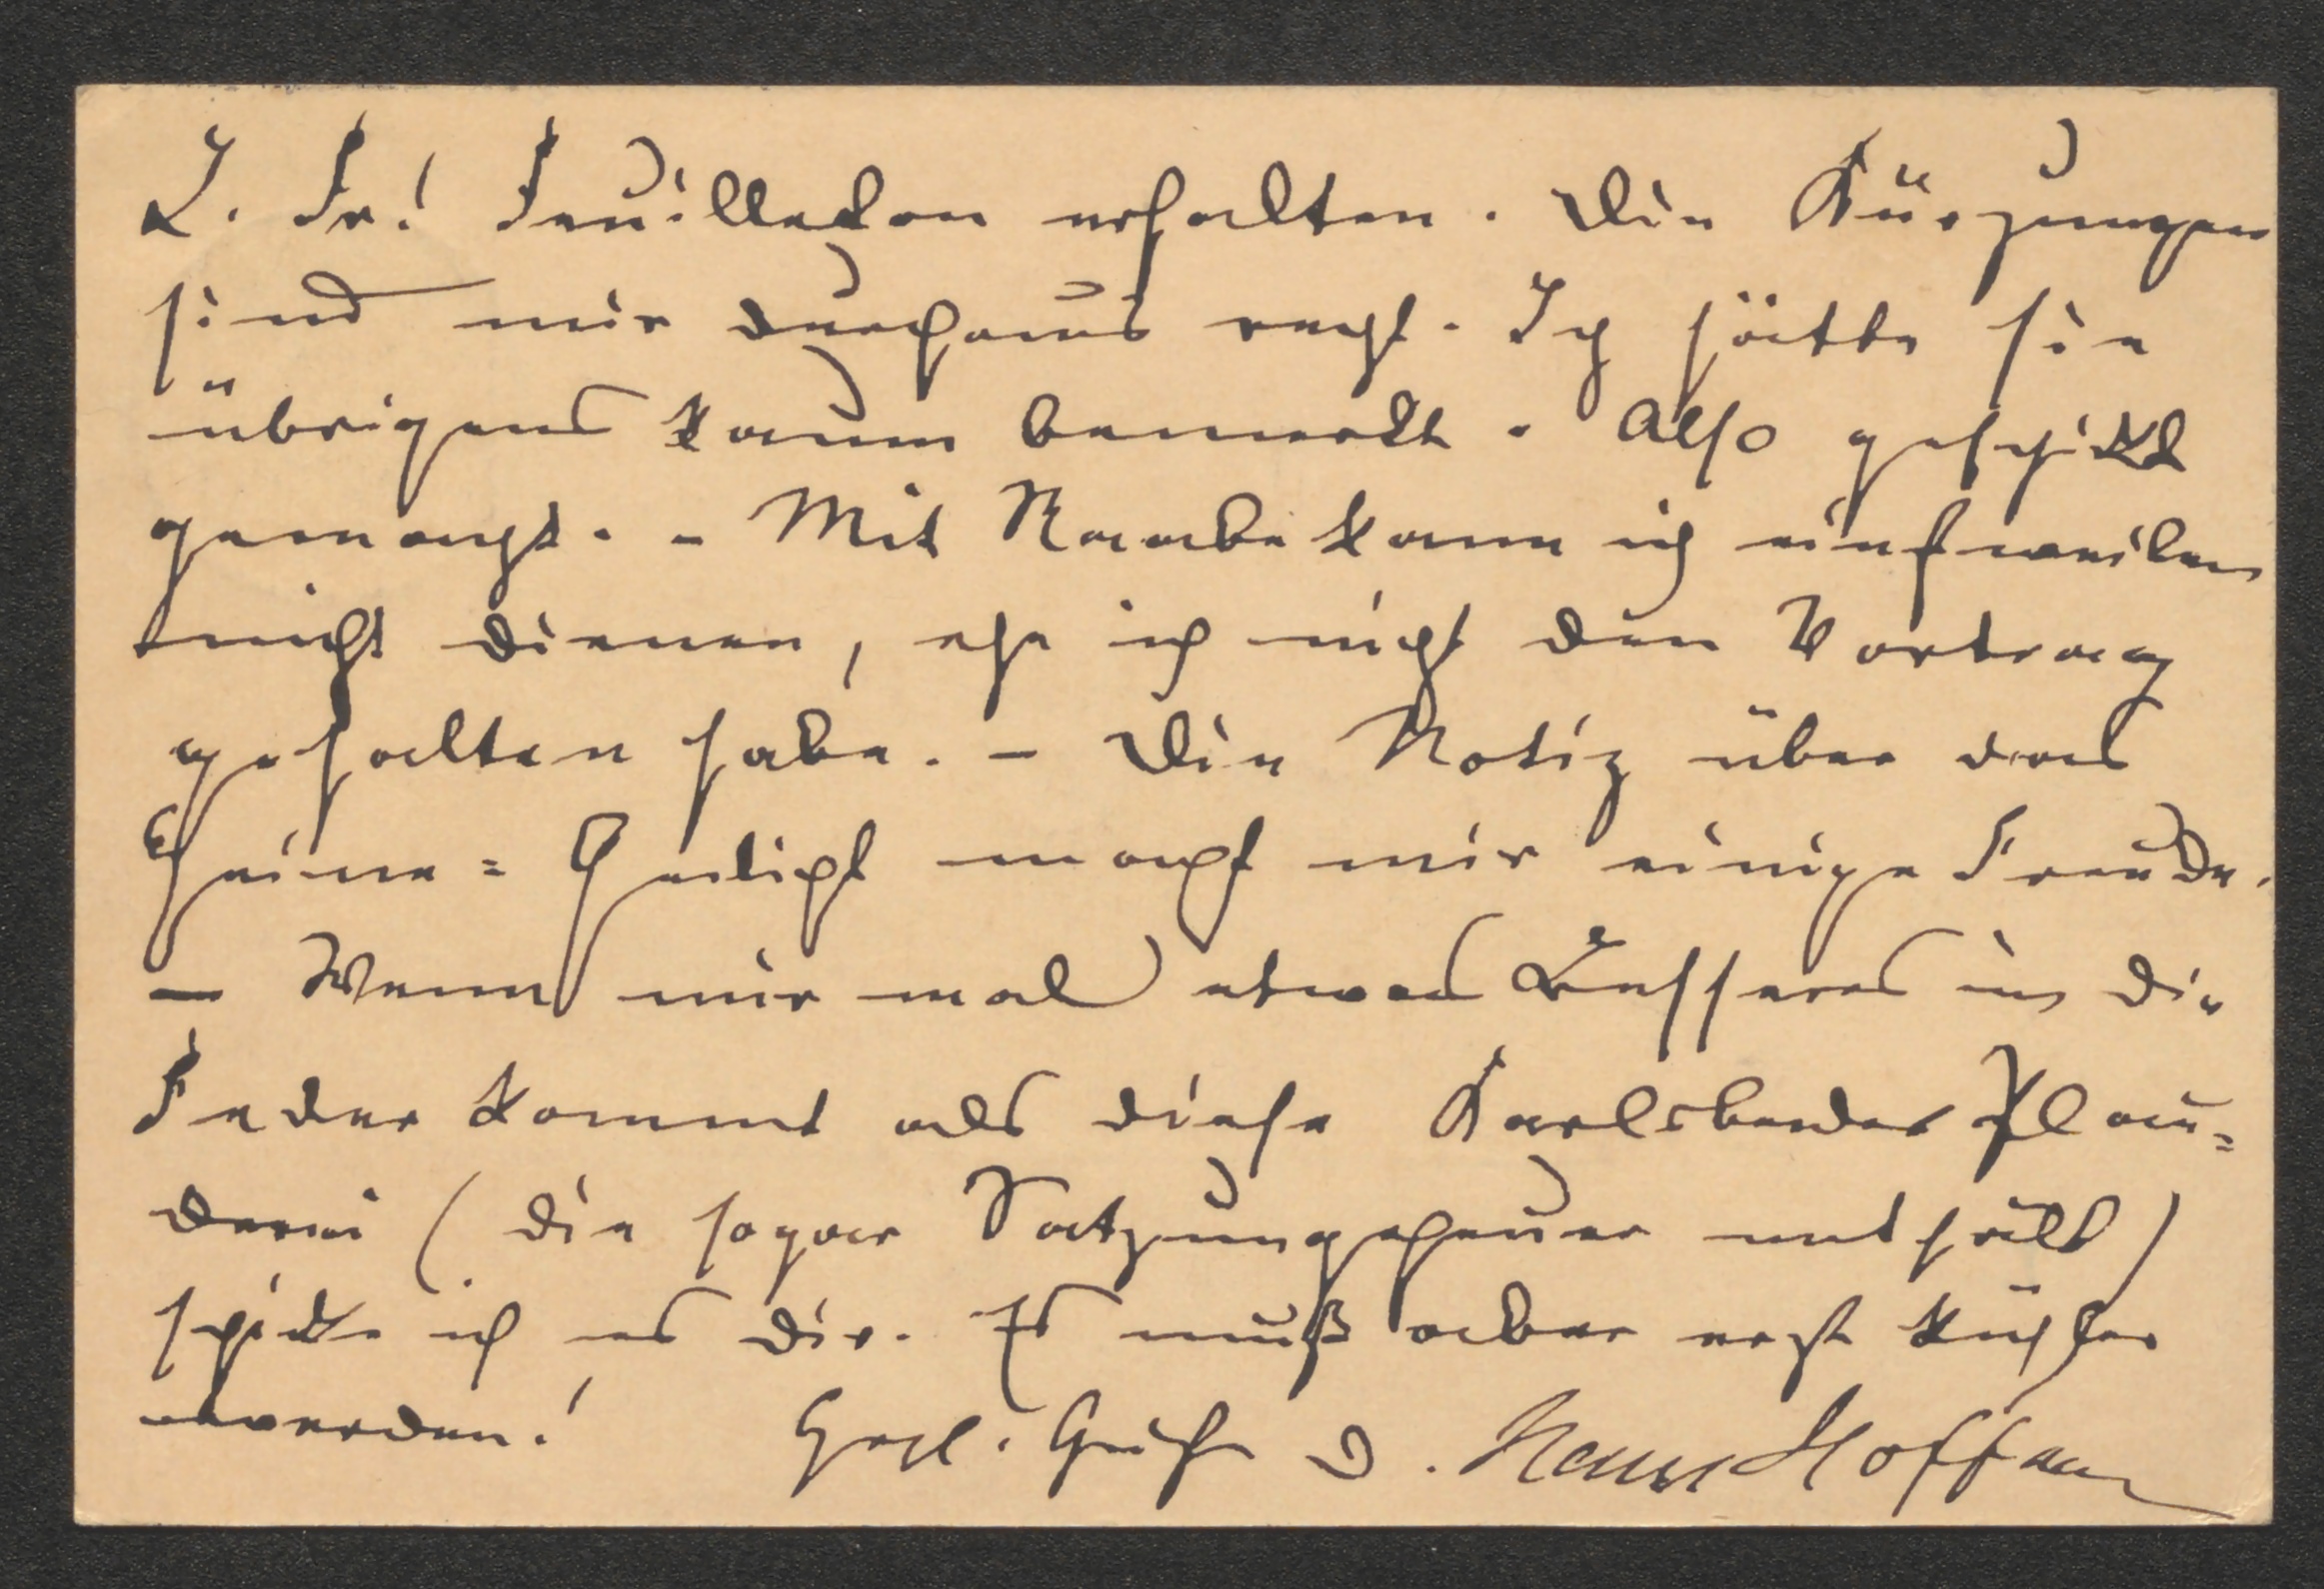 L. Fr! Feuilleton erhalten. Die Kürzungen
sind mir durchaus recht. Ich hätte sie
übrigens kaum bemerkt. Also geschickt
gemacht. - Mit Raabe kann ich einstweilen
nicht dienen, ehe ich nicht den Vortrag
gehalten habe. - Die Notiz über das
Heine=Gedicht macht mir einige Freude.
- Wenn mir mal etwas Besseres in die
Feder kommt als diese Karlsbader Plau=
derei (die sogar Satzungeheuer enthält)
schicke ich es dir. Es muß aber erst kühler
werden! Herzl. Grüße D. Hans Hoffmann